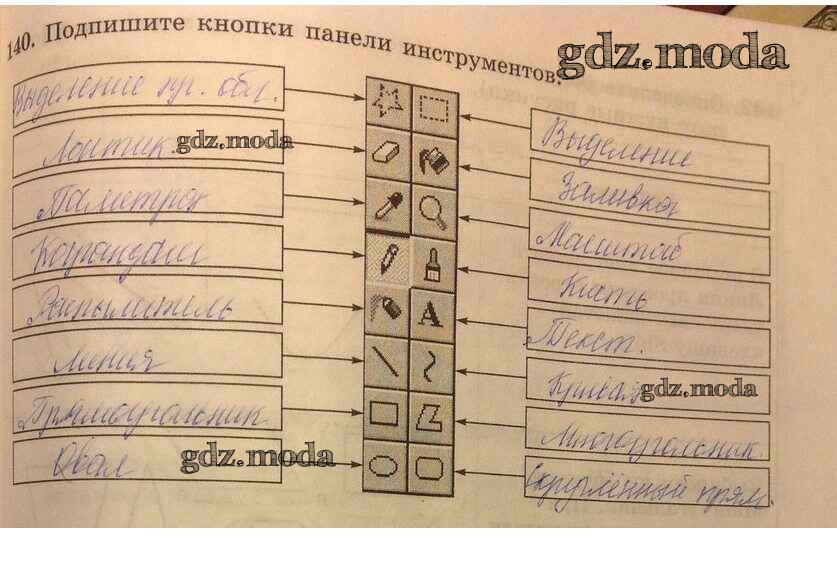 140. Подпишите кнопки панели инструментов.
gdz.moda
Выделение пр. обл.
Ластик
gdz.moda
Выделение
Заливка
Масштаб
Карандаш
Кисть
Распылитель
A
Текст.
Линия
Кривая
gdz.moda
Прямоугольник
Многоугольник
Овал
gdz.moda
Скруглённый прям.